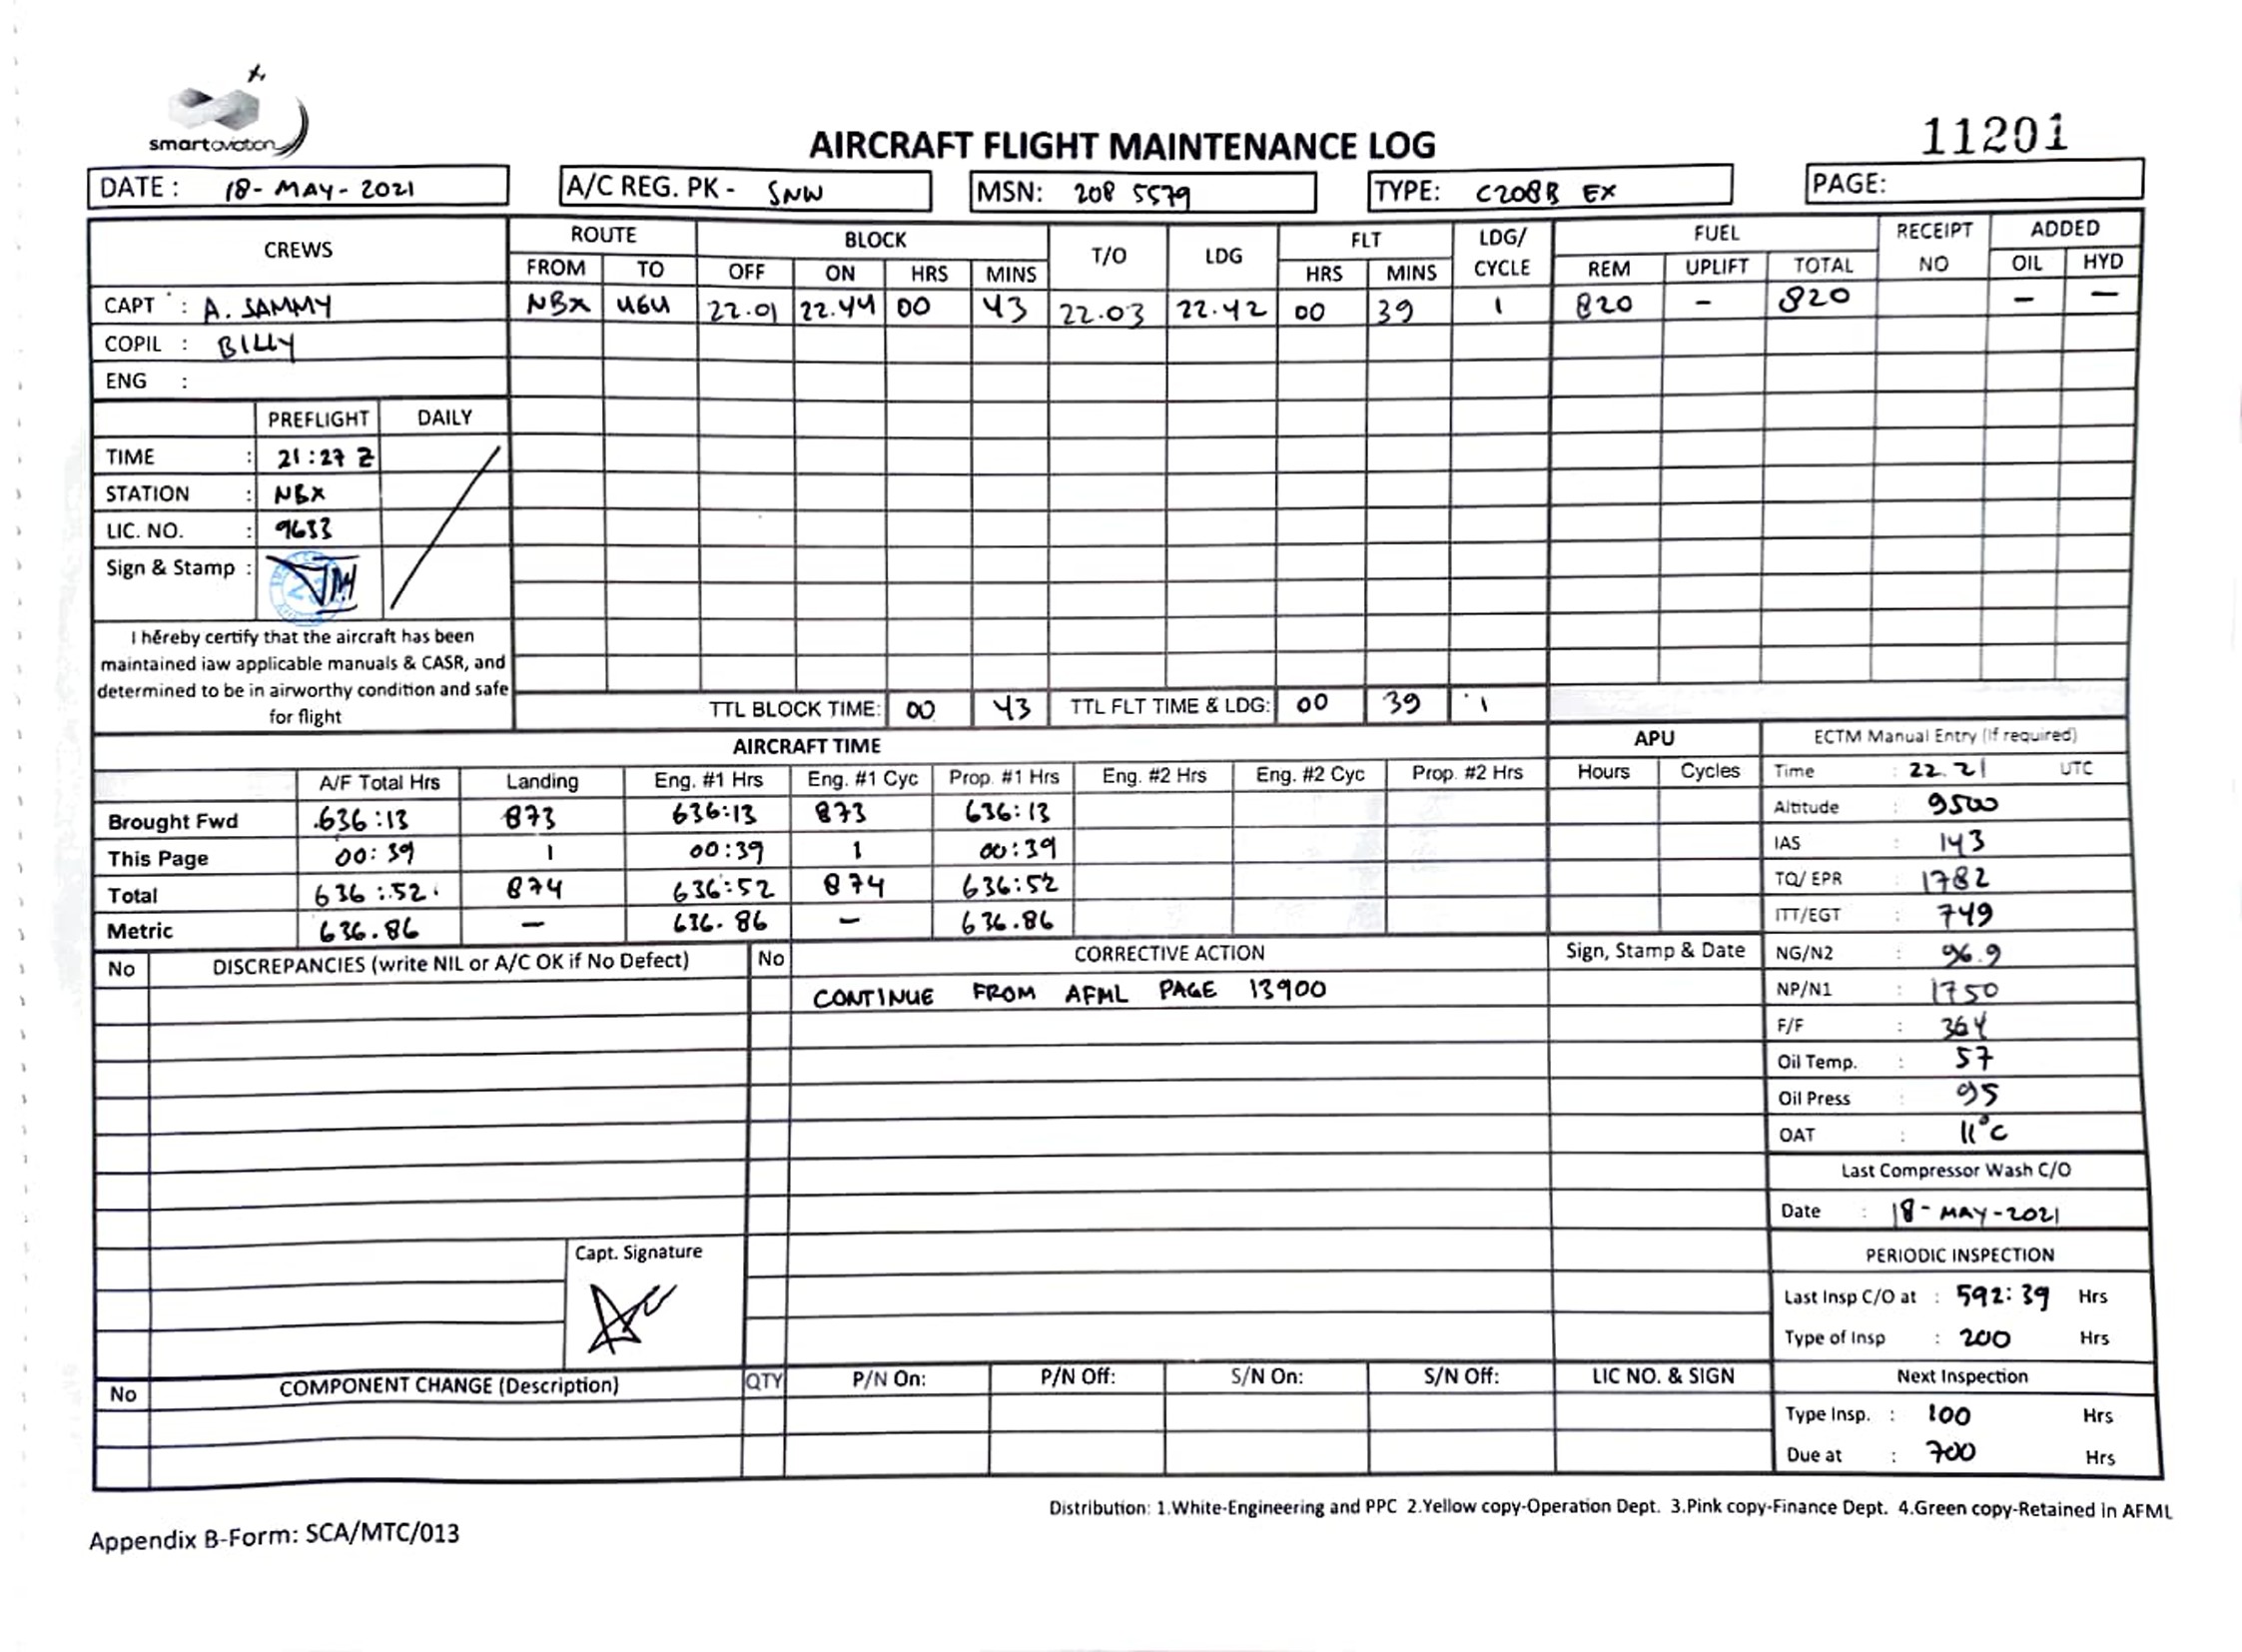 smartaviation
AIRCRAFT FLIGHT MAINTENANCE LOG
11201
DATE : 18-MAY-2021
A/C REG. PK - SNW
MSN: 208 5579
TYPE: C208B EX
PAGE:
CREWS ROUTE BLOCK T/O LDG FLT LDG/ CYCLE FUEL RECEIPT NO ADDED
FROM TO OFF ON HRS MINS HRS MINS REM UPLIFT TOTAL OIL HYD
CAPT : A. SAMMY NBX UGU 22.01 22.44 00 43 22.03 22.42 00 39 1 820 - 820 - -
COPIL : BILLY
ENG :
PREFLIGHT DAILY
TIME : 21:27 Z
STATION : NBX
LIC. NO. : 9633
Sign & Stamp :
I hereby certify that the aircraft has been
maintained iaw applicable manuals & CASR, and
determined to be in airworthy condition and safe
for flight
TTL BLOCK TIME: 00 43 TTL FLT TIME & LDG: 00 39 1
AIRCRAFT TIME
A/F Total Hrs Landing Eng. #1 Hrs Eng. #1 Cyc Prop. #1 Hrs Eng. #2 Hrs Eng. #2 Cyc Prop. #2 Hrs
Brought Fwd 636:13 873 636:13 873 636:13
This Page 00:39 1 00:39 1 00:39
Total 636:52 874 636:52 874 636:52
Metric 636.86 - 636.86 - 636.86
APU
Hours Cycles
ECTM Manual Entry (If required)
Time : 22.21 UTC
Altitude : 9500
IAS : 143
TQ/ EPR : 1782
ITT/EGT : 749
NG/N2 : 96.9
NP/N1 : 1750
F/F : 364
Oil Temp. : 57
Oil Press : 95
OAT : 11°C
Last Compressor Wash C/O
Date : 18-MAY-2021
PERIODIC INSPECTION
Last Insp C/O at : 592:39 Hrs
Type of Insp : 200 Hrs
Next Inspection
Type Insp. : 100 Hrs
Due at : 700 Hrs
No DISCREPANCIES (write NIL or A/C OK if No Defect) No CORRECTIVE ACTION Sign, Stamp & Date
CONTINUE FROM AFML PAGE 13900
Capt. Signature
No COMPONENT CHANGE (Description) QTY P/N On: P/N Off: S/N On: S/N Off: LIC NO. & SIGN
Distribution: 1.White-Engineering and PPC 2.Yellow copy-Operation Dept. 3.Pink copy-Finance Dept. 4.Green copy-Retained in AFML
Appendix B-Form: SCA/MTC/013